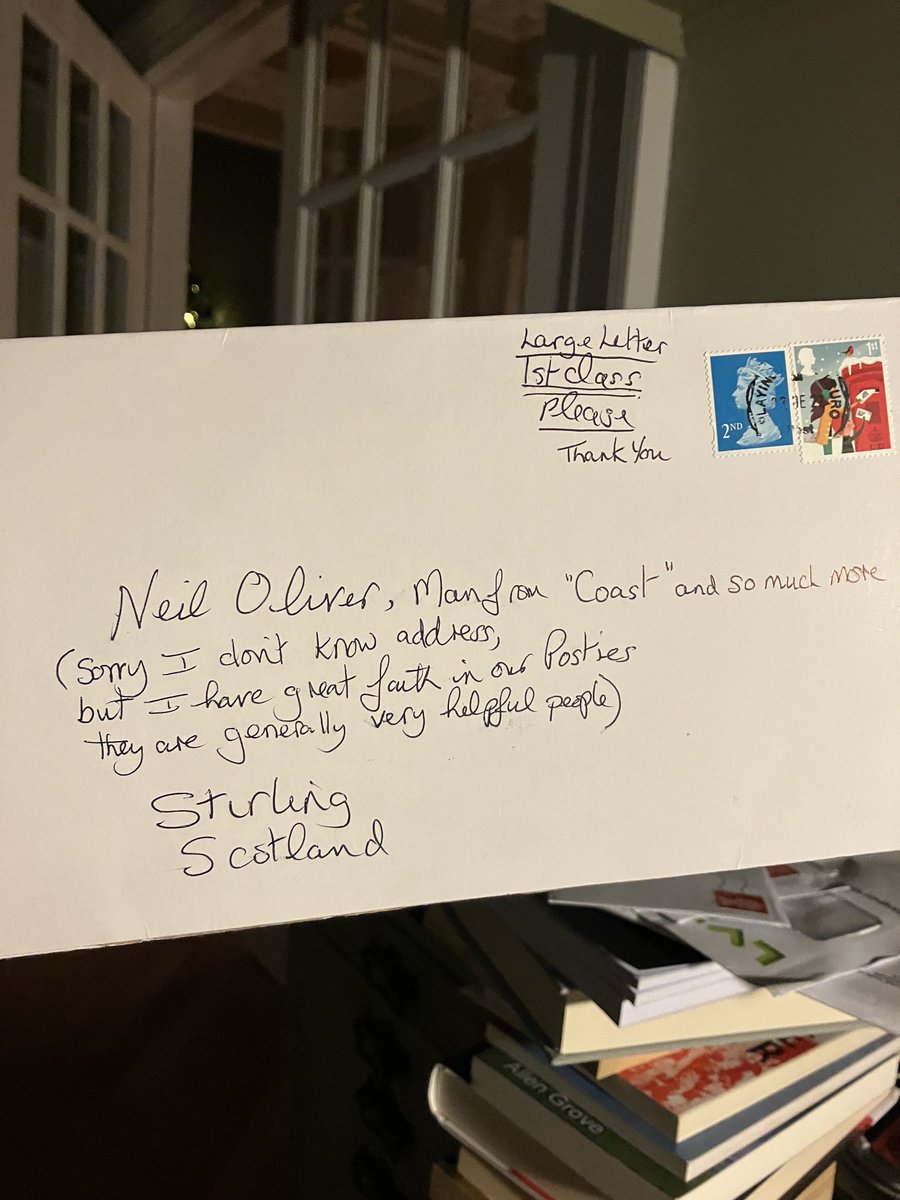 Large Letter
1st class
Please
Thank You
2ND
1st
Neil Oliver, Man from "Coast" and so much more
(Sorry I don't know address,
but I have great faith in our Posties
they are generally very helpful people)
Stirling
Scotland
Allen Grove